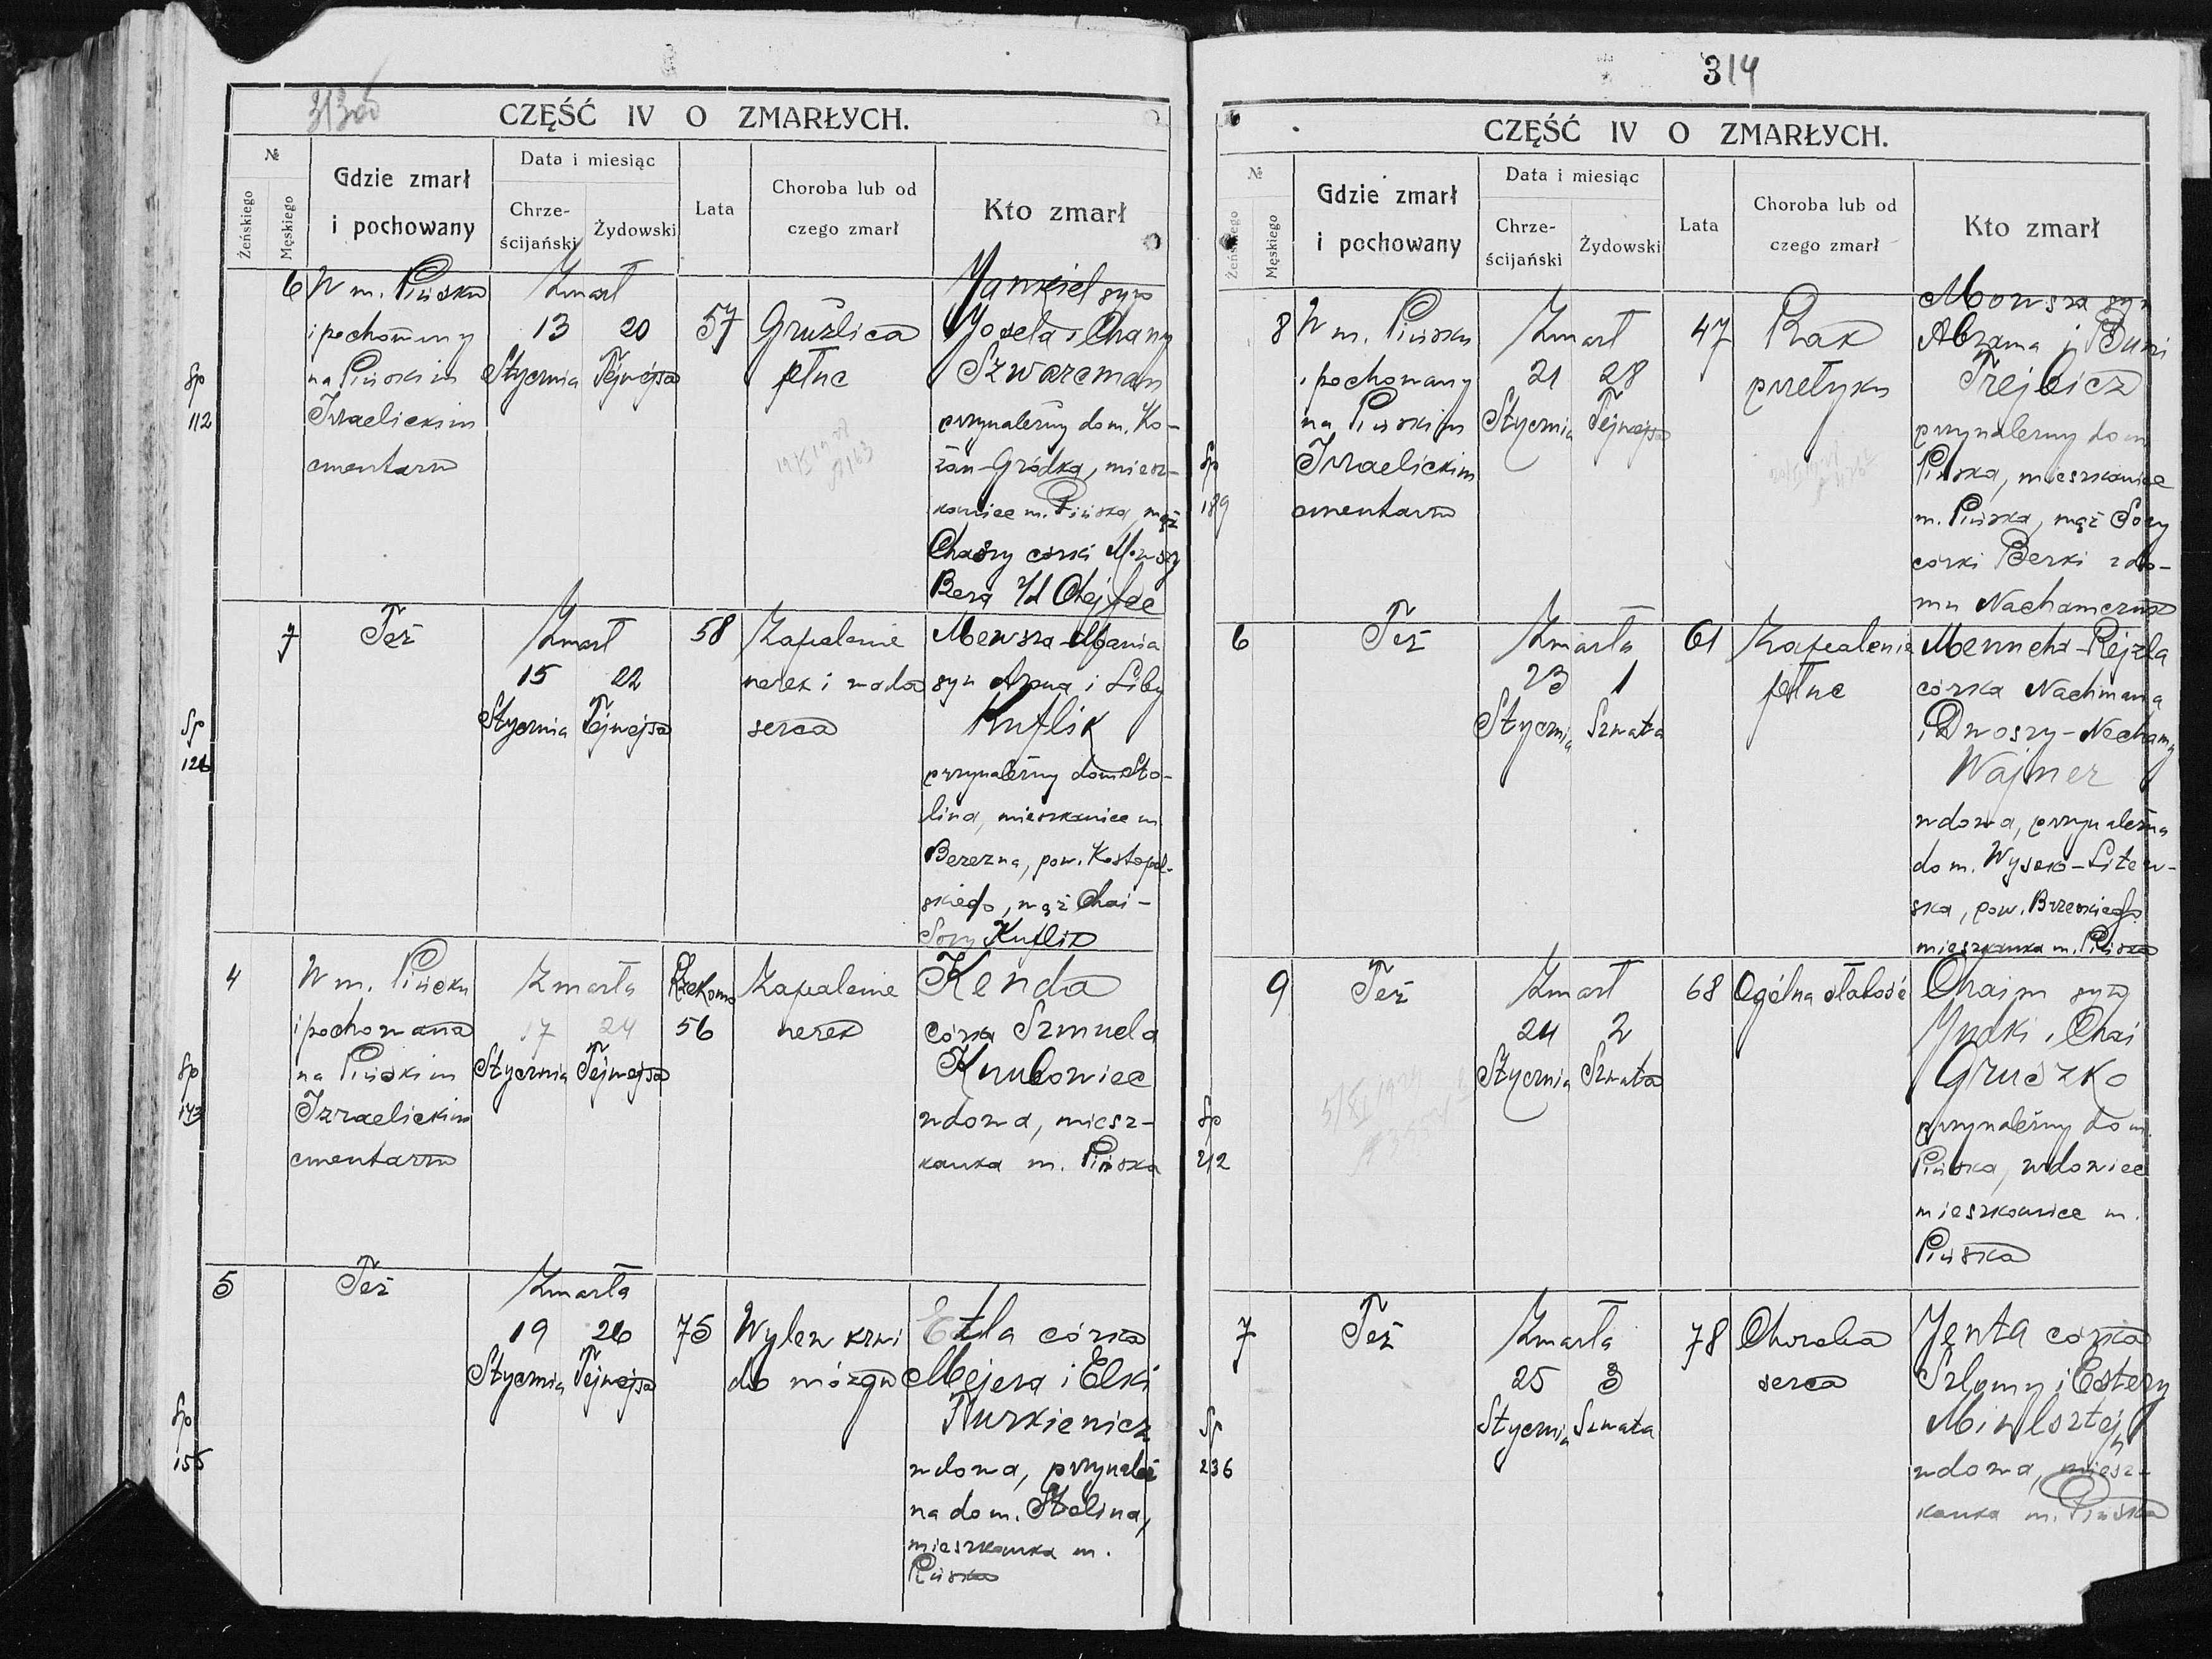 CZĘŚĆ IV O ZMARŁYCH.
№
Żeńskiego
Męskiego
Gdzie zmarł
i pochowany
Data i miesiąc
Chrze-
ścijański
Żydowski
Lata
Choroba lub od
czego zmarł
Kto zmarł
Sp
112
6
W m. Pińsku
i pochowany
na Pińskim
Izraelickim
cmentarzu
Zmarł
13 20
Stycznia Tejwejsa
57
Gruźlica
płuc
Jankiel syn
Josela i Chany
Szwarcman
przynależny do m. Ko-
żan-Gródka, miesz-
kaniec m. Pińska, mąż
Chasry córki Mowszy
Bera z/d Chejfec
Sp
126
7
Też
Zmarł
15 22
Stycznia Tejwejsa
58
Zapalenie
nerek i wada
serca
Mowsza-Mania
syn Arona i Liby
Kuflik
przynależny do m. Sto-
lina, mieszkaniec m.
Berezna, pow. Kostopol-
skiego, mąż Chai-
Sory Kuflik
Sp
143
4
W m. Pińsku
i pochowana
na Pińskim
Izraelickim
cmentarzu
Zmarła
17 24
Stycznia Tejwejsa
Rzekomo
56
Zapalenie
nerek
Kenda
córka Szmuela
wdowa, miesz-
kanka m. Pińska
Sp
155
5
Też
Zmarła
19 26
Stycznia Tejwejsa
75
Wylew krwi
do mózgu
Etla córka
Mejera i Elki
Turkienicz
wdowa, przynależ
na do m. Stolina,
mieszkanka m.
Pińska
314
CZĘŚĆ IV O ZMARŁYCH.
№
Żeńskiego
Męskiego
Gdzie zmarł
i pochowany
Data i miesiąc
Chrze-
ścijański
Żydowski
Lata
Choroba lub od
czego zmarł
Kto zmarł
Sp
189
8
W m. Pińsku
i pochowany
na Pińskim
Izraelickim
cmentarzu
Zmarł
21 28
Stycznia Tejwejsa
47
Rak
przełyku
Mowsza syn
Abrama i Buni
Trejbicz
przynależny do m.
Pińska, mieszkaniec
m. Pińska, mąż Sory
córki Berki z do-
mu Nachamczuk
6
Też
Zmarła
23 1
Stycznia Szwata
61
Zapalenie
płuc
Menucha-Rejzla
córka Nachmana
i Dwoszy-Nechamy
Wajner
wdowa, przynależna
do m. Wysoko-Litew-
ska, pow. Brzeskiego
mieszkanka m. Pińska
Sp
212
9
Też
Zmarł
24 2
Stycznia Szwata
68
Ogólna słabość
Chaim syn
Judki i Chai
Gruszko
przynależny do m.
Pińska, wdowiec
mieszkaniec m.
Pińska
Sp
236
7
Też
Zmarła
25 3
Stycznia Szwata
78
Choroba
serca
Jenta córka
Szlomy i Estery
wdowa, miesz-
kanka m. Pińska